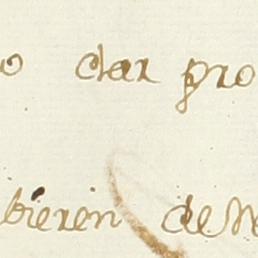 o dar pro
bieren de